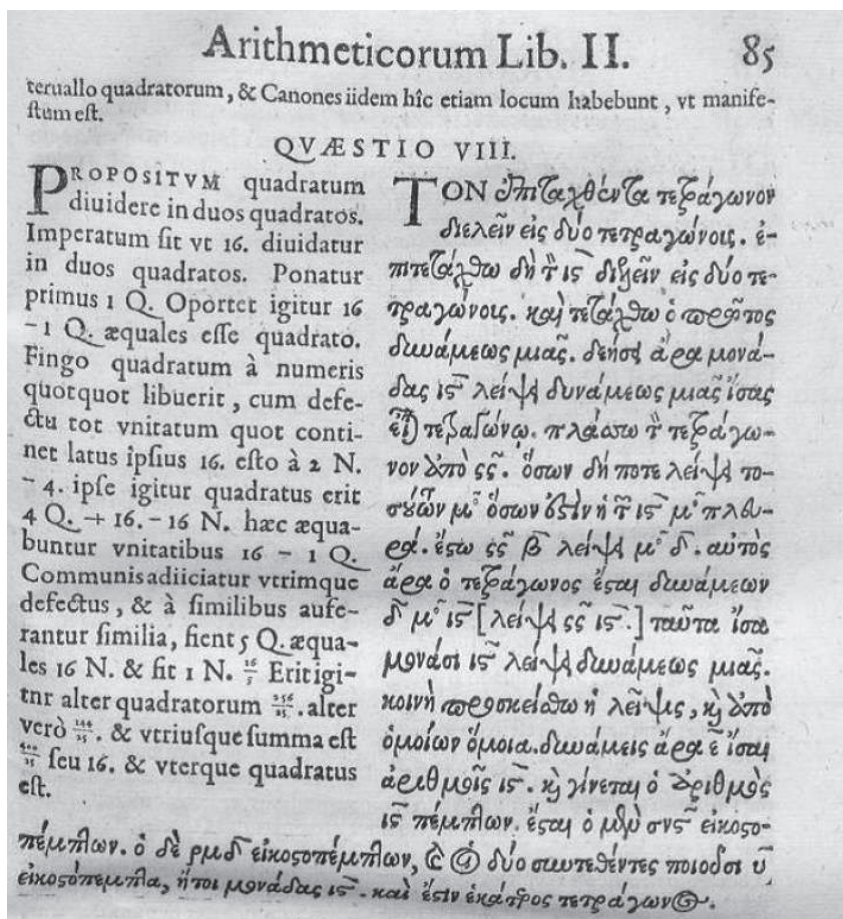 Arithmeticorum Lib. II. 85
teruallo quadratorum, & Canones iidem hîc etiam locum habebunt, vt manife-
ſtum eſt.
QVÆSTIO VIII.
PROPOSITVM quadratum
diuidere in duos quadratos.
Imperatum ſit vt 16. diuidatur
in duos quadratos. Ponatur
primus 1 Q. Oportet igitur 16
− 1 Q. æquales eſſe quadrato.
Fingo quadratum à numeris
quotquot libuerit, cum defe-
ctu tot vnitatum quot conti-
net latus ipſius 16. eſto à 2 N.
− 4. ipſe igitur quadratus erit
4 Q. + 16. − 16 N. hæc æqua-
buntur vnitatibus 16 − 1 Q.
Communis adiiciatur vtrimque
defectus, & à ſimilibus aufe-
rantur ſimilia, fient 5 Q. æqua-
les 16 N. & fit 1 N. 16/5 Erit igi-
tnr alter quadratorum 256/25. alter
verò 144/25. & vtriuſque ſumma eſt
400/25 ſeu 16. & vterque quadratus
eſt.
ΤΟΝ ἐπιταχθέντα τετράγωνον
διελεῖν εἰς δύο τετραγώνοις. ἐ-
πιτετάχθω δὴ τὸν ις διελεῖν εἰς δύο τε-
τραγώνοις. καὶ τετάχθω ὁ πρῶτος
δυνάμεως μιᾶς. δεήσει ἄρα μονά-
δας ις λείψει δυνάμεως μιᾶς ἴσας
εἶναι τετραγώνῳ. πλάσσω τὸν τετράγω-
νον ἀπὸ ςς. ὅσων δή ποτε λείψει το-
σούτων μο ὅσων ἐστὶν ἡ τῶν ις μο πλευ-
ρά. ἔστω ςς β λείψει μο δ. αὐτὸς
ἄρα ὁ τετράγωνος ἔσται δυνάμεων
δ μο ις [λείψει ςς ις.] ταῦτα ἴσα
μονάσι ις λείψει δυνάμεως μιᾶς.
κοινὴ προσκείσθω ἡ λεῖψις, καὶ ἀπὸ
ὁμοίων ὅμοια. δυνάμεις ἄρα ε ἴσαι
ἀριθμοῖς ις. καὶ γίνεται ὁ ἀριθμὸς
ις πέμπτων. ἔσται ὁ μὲν σνς εἰκοσο-
πέμπτων. ὁ δὲ ρμδ εἰκοσοπέμπτων, καὶ οἱ δύο συντεθέντες ποιοῦσι υ
εἰκοσόπεμπτα, ἤτοι μονάδας ις. καὶ ἔστιν ἑκάτερος τετράγωνος.